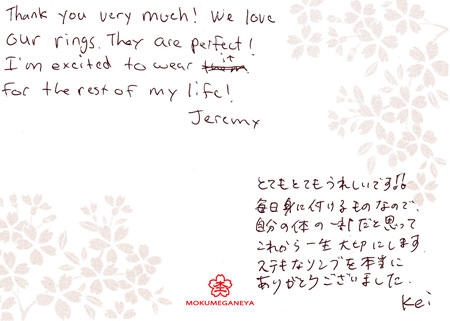 Thank you very much! We love
our rings. They are perfect!
I'm excited to wear it
for the rest of my life!
Jeremy
とてもとてもうれしいです!!
毎日身に付けるものなので、
自分の体の一部だと思って
これから一生大切にします。
ステキなリングを本当に
ありがとうございました。
Kei
MOKUMEGANEYA